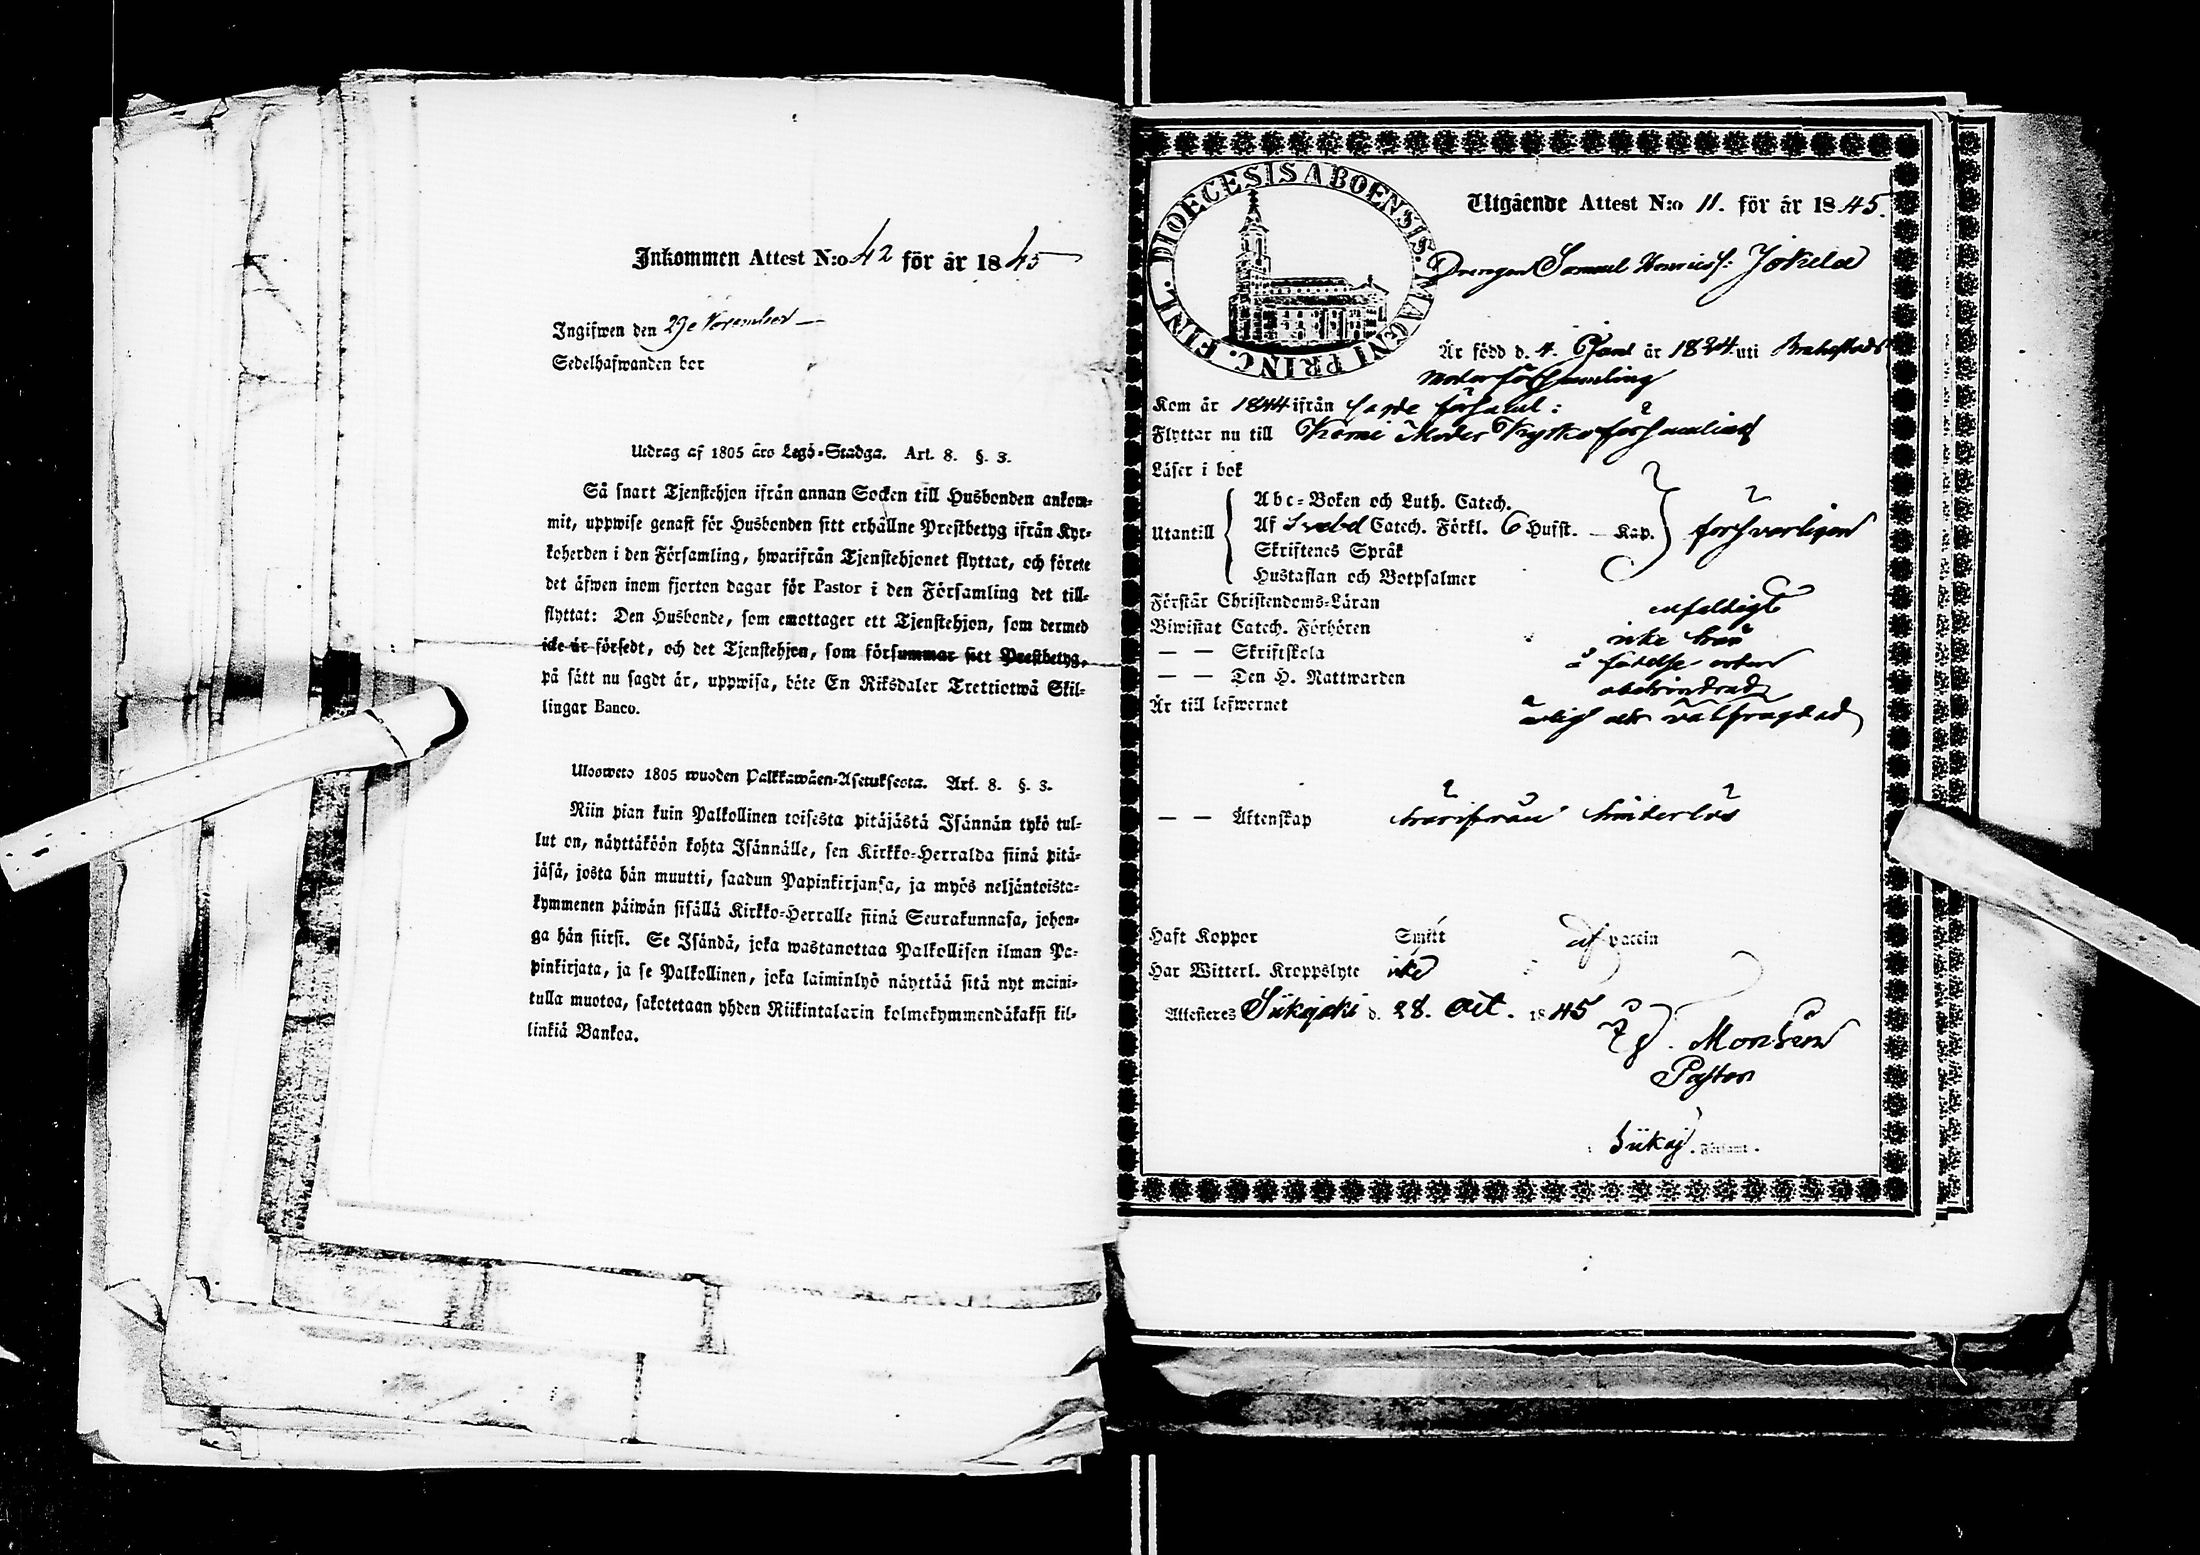 Inkommen Attest N:o 42 för år 1845
Ingifwen den 29e November
Sedelhafwanden bor
Utdrag af 1805 års Lego-Stadga. Art. 8. §. 3.
Så snart Tjenstehjon ifrån annan Socken till Husbonden ankom-
mit, uppwise genast för Husbonden sitt erhållne Prestbetyg ifrån Kyr-
koherden i den Församling, hwarifrån Tjenstehjonet flyttat, och förete
det äfwen inom fjorton dagar för Pastor i den Församling det till-
flyttat: Den Husbonde, som emottager ett Tjenstehjon, som dermed
icke är försedt, och det Tjenstehjon, som försummar sitt Prestbetyg,
på sätt nu sagdt är, uppwisa, böte En Riksdaler Trettiotwå Skil-
lingar Banco.
Ulosweto 1805 wuoden Palkkawäen-Asetuksesta. Art. 8. §. 3.
Niin pian kuin Palkollinen toisesta pitäjästä Isännän tykö tul-
lut on, näyttäköön kohta Isännälle, sen Kirkko-Herralda siinä pitä-
jäsä, josta hän muutti, saadun Papinkirjansa, ja myös neljäntoista-
kymmenen päiwän sisällä Kirkko-Herralle siinä Seurakunnasa, johon-
ga hän siirsi. Se Isändä, joka wastanottaa Palkollisen ilman Pa-
pinkirjata, ja se Palkollinen, joka laiminlyö näyttää sitä nyt maini-
tulla muotoa, sakotetaan yhden Riikintalarin kolmekymmendäkaksi kil-
linkiä Bankoa.
FINL. DIOECESIS ABOENSIS. MAGNI PRINC.
Utgående Attest N:o 11. för år 1845.
Drengen Samuel Henricss: Jokela
Är född d. 4. Jan år 1824 uti Brahestads
Moderförsamling
Kom år 1844 ifrån sagde församl:
Flyttar nu till Kemi Moder Kyrko församling
Läser i bok
Utantill
Abc-Boken och Luth. Catech.
Af Svebel Catech. Förkl. 6 Hufst. — Kap.
Skriftenes Språk
Hustaflan och Botpsalmer
försvarligen
Förstår Christendoms-Läran enfaldigt
Biwistat Catech. Förhören icke här
— — Skriftskola å födelse orten
— — Den H. Nattwarden obehindrad
Är till lefwernet ärlig och välfrägdad
— — Äktenskap härifrån hinderlös
Haft Koppor Smitt af vaccin
Har Witterl. Kroppslyte icke
Attesteres Siikajoki d. 28. Oct. 1845
Montin
Pastor
i Siikaj. Församl.